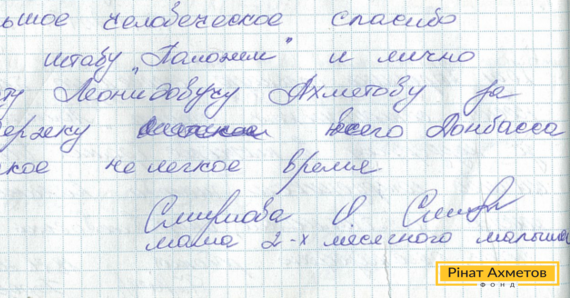 ьшое человеческое спасибо
штабу "Поможем" и лично
ту Леонидовичу Ахметову за
держку всего Донбасса
кое нелегкое время
Смирнова О
мама 2-х месячного малыша
Рінат Ахметов
ФОНД